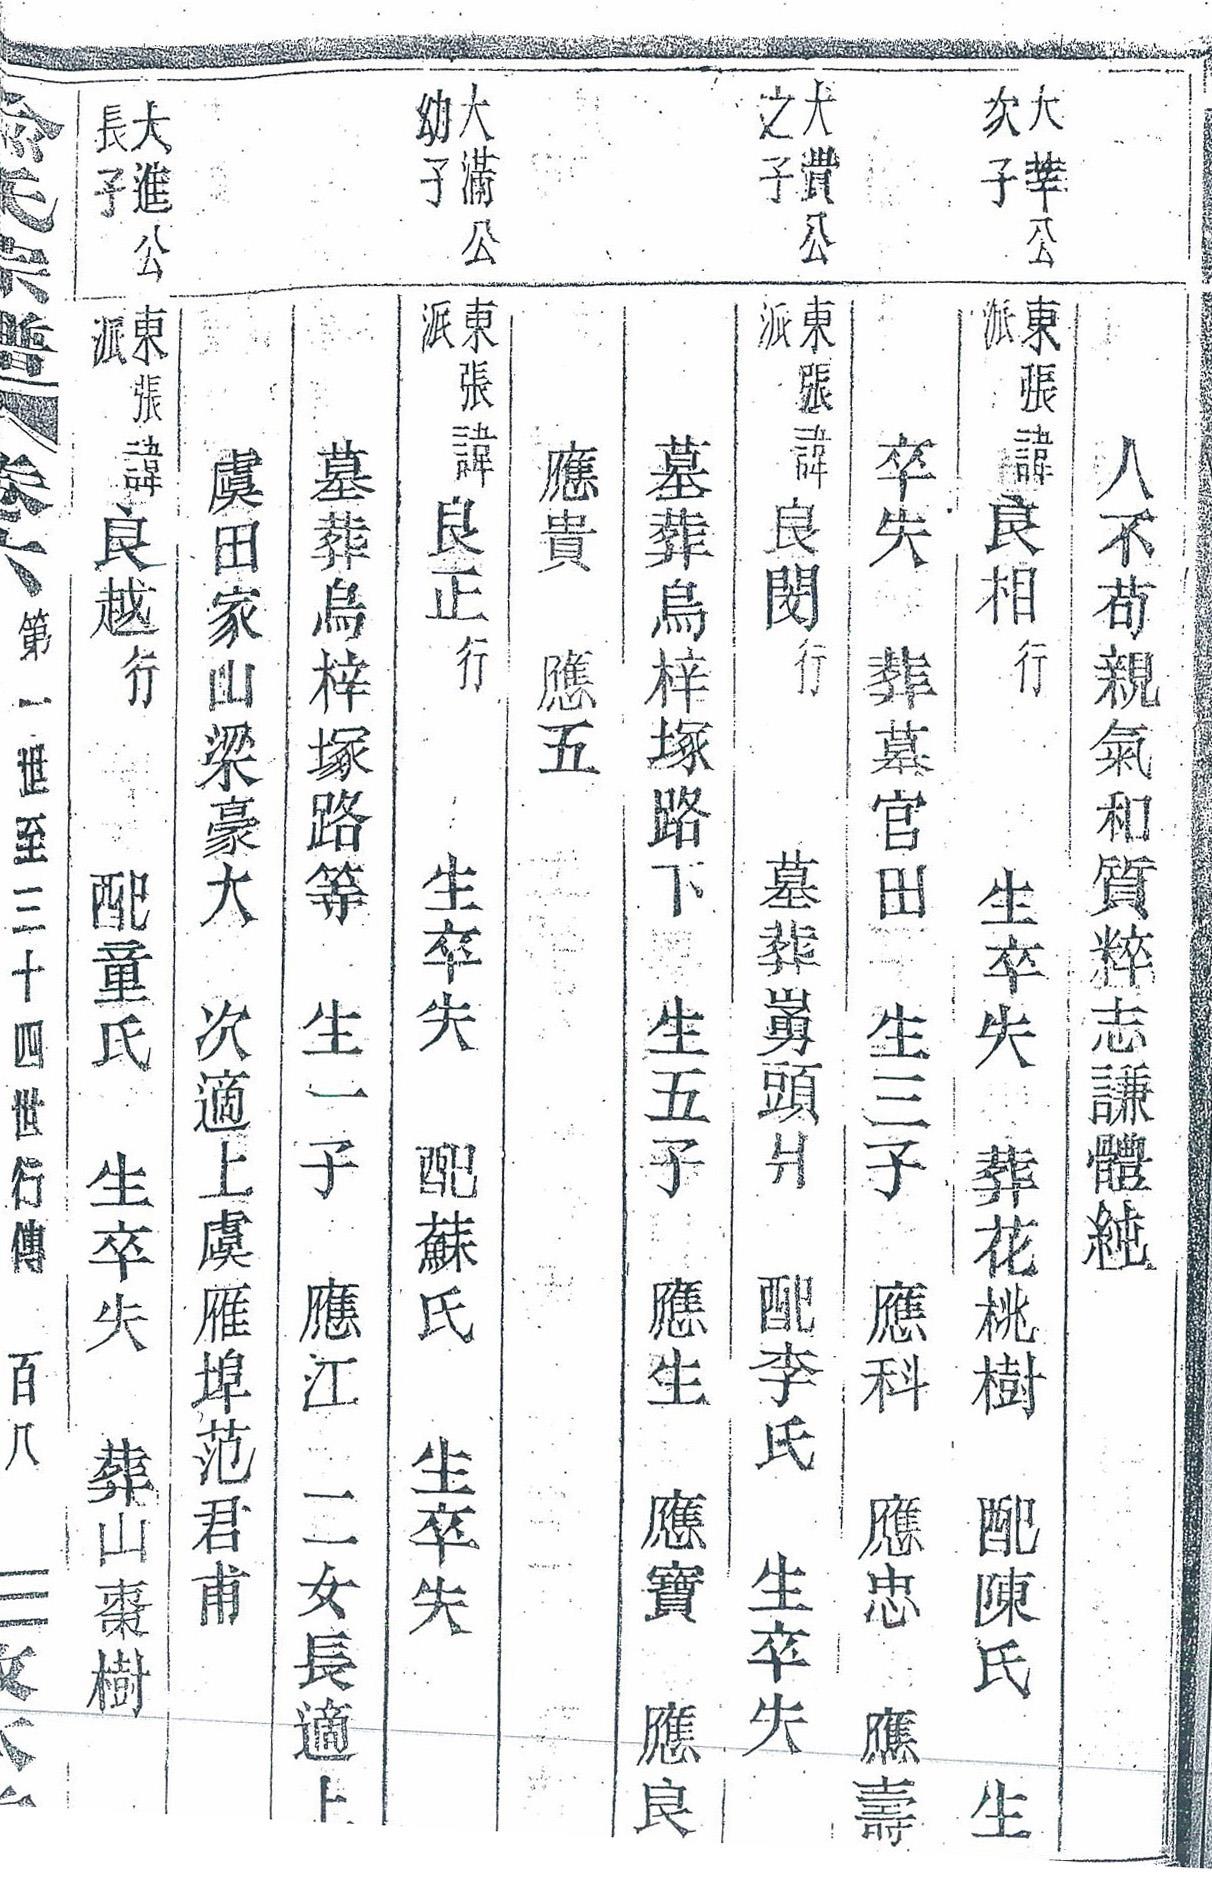 人不苟親氣和質粹志謙體純
大華公次子
東張派諱良相行 生卒失 葬花桃樹 配陳氏 生
卒失 葬墓官田 生三子 應科 應忠 應壽
大貴公之子
東張派諱良閔行 墓葬嵜頭爿 配李氏 生卒失
墓葬烏梓塚路下 生五子 應生 應寶 應良
應貴 應五
大滿公幼子
東張派諱良正行 生卒失 配蘇氏 生卒失
墓葬烏梓塚路等 生一子 應江 二女長適上
虞田家山梁豪大 次適上虞雁埠范君甫
大進公長子
東張派諱良越行 配童氏 生卒失 葬山棗樹
氏宗譜 卷六 第一世至三十四世行傳 百八 三